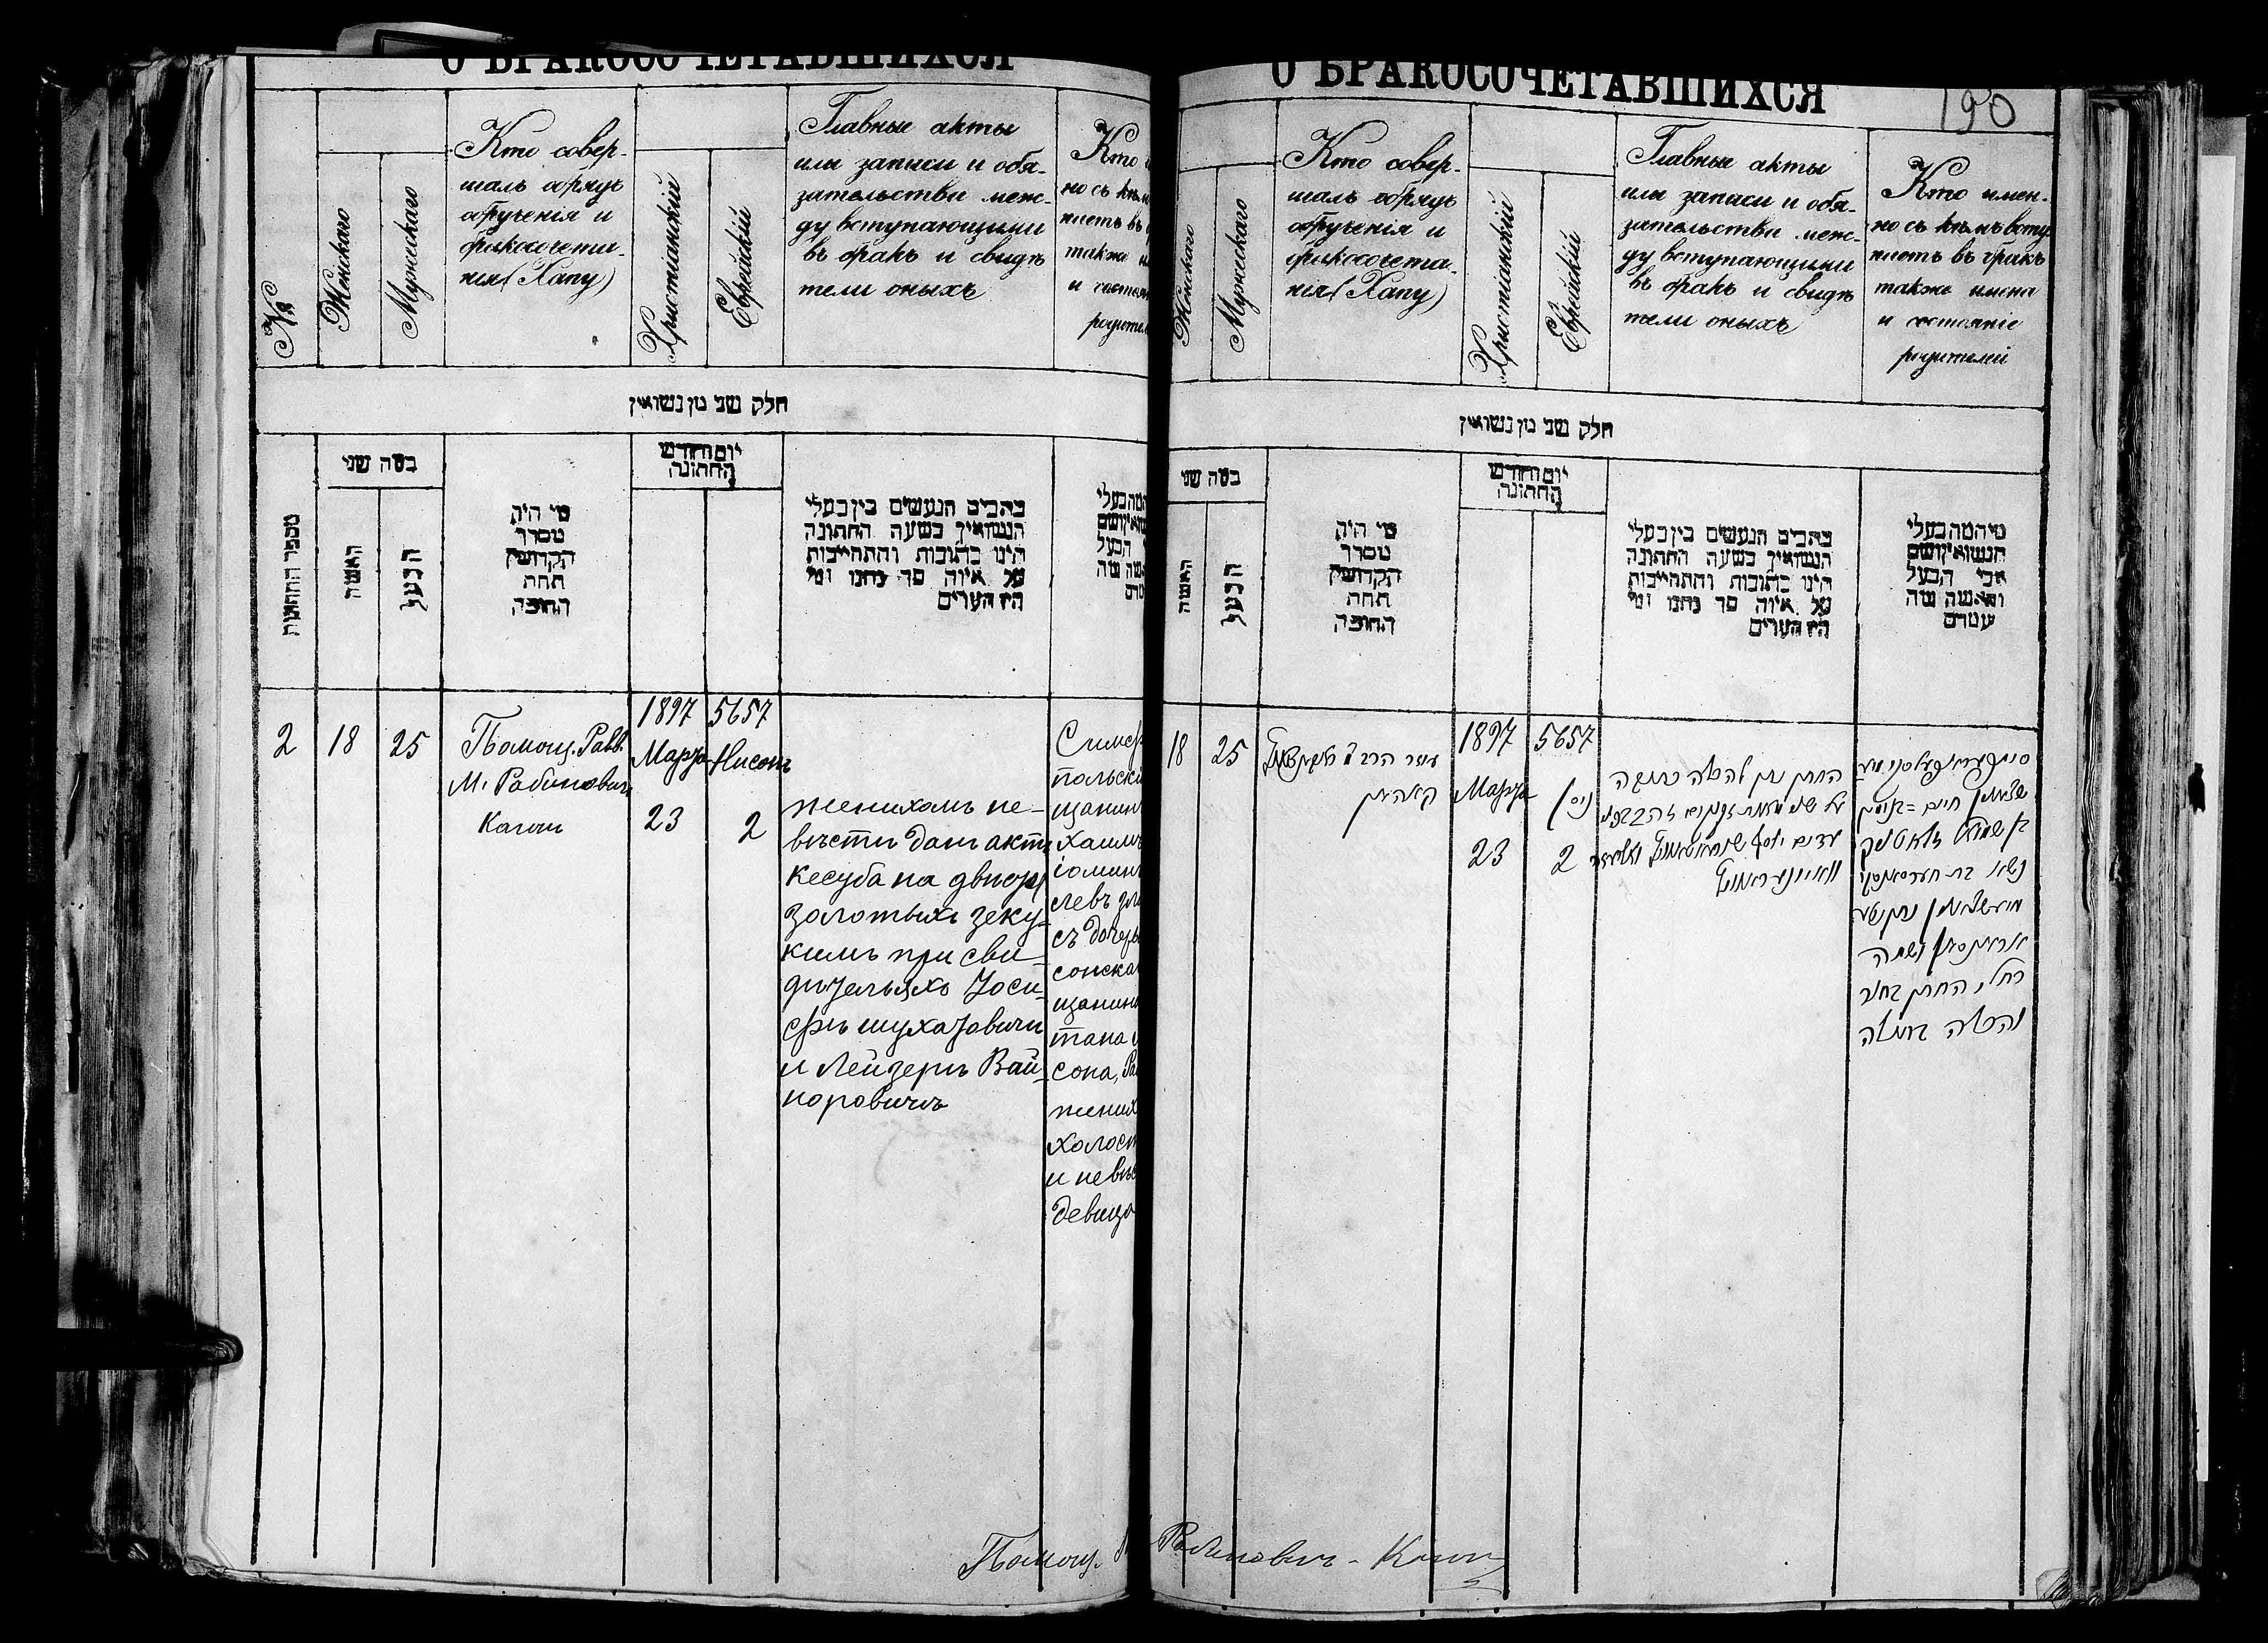 О БРАКОСОЧЕТАВШИХСЯ
№
Женскаго
Мужескаго
Кто совер-
шалъ обрядъ
обрученія и
бракосочета-
нія (Хапу)
Христіанскій
Еврейскій
Главные акты
или записи и обя-
зательства меж-
ду вступающими
въ бракъ и свидѣ
тели оныхъ
Кто
но съ кѣм
родител
חלק שני מן נשואין
מספר החתונות
כמה שני
האשה
הבעל
מי היה
מסדר
הקדושין
תחת
החופה
יום וחודש
החתונה
כתבים הנעשים בין בעלי
הנשואין בשעה החתונה
היינו כתובות והתחייבות
על איזה סך נתנו ומי
היו העדים
2
18
25
Помощ. Равв.
М. Рабинович
Каган
1897
Марта
23
5657
Нисонъ
2
женихомъ не-
вѣсти данъ актъ
кесуба на двѣсти
золотыхъ зеку-
кимъ при сви-
дѣтеляхъ Іоси-
фъ Шухатовичи
и Лейзеръ Вай-
норовичъ
Симеф
польски
щанин
хаимъ
слевъ
съ дочерь
сонска
щанин
тана
сона, Ра
жених
холост
и невѣ
девица
О БРАКОСОЧЕТАВШИХСЯ
190
Женскаго
Мужескаго
Кто совер-
шалъ обрядъ
обрученія и
бракосочета-
нія (Хапу)
Христіанскій
Еврейскій
Главные акты
или записи и обя-
зательства меж-
ду вступающими
въ бракъ и свидѣ
тели оныхъ
Кто имен-
но съ кѣмъ всту-
паетъ въ бракъ
также имена
и состояніе
родителей
חלק שני מן נשואין
כמה שני
האשה
הבעל
מי היה
מסדר
הקדושין
תחת
החופה
יום וחודש
החתונה
כתבים הנעשים בין בעלי
הנשואין בשעה החתונה
היינו כתובות והתחייבות
על איזה סך נתנו ומי
היו העדים
מי המה בעלי
הנשואין ושם
אבי הבעל
והאשה מה
18
25
עוזר הרב
קאהאן
1897
Марта
23
5657
ניסן
2
החתן נתן להכלה כתובה
על שני מאות זקוקים
עדים יוסף
חיים
בן שמואל
נשא בת
רחל, החתן בחור
והכלה בתולה
Помощ. Рабиновичъ - Каган